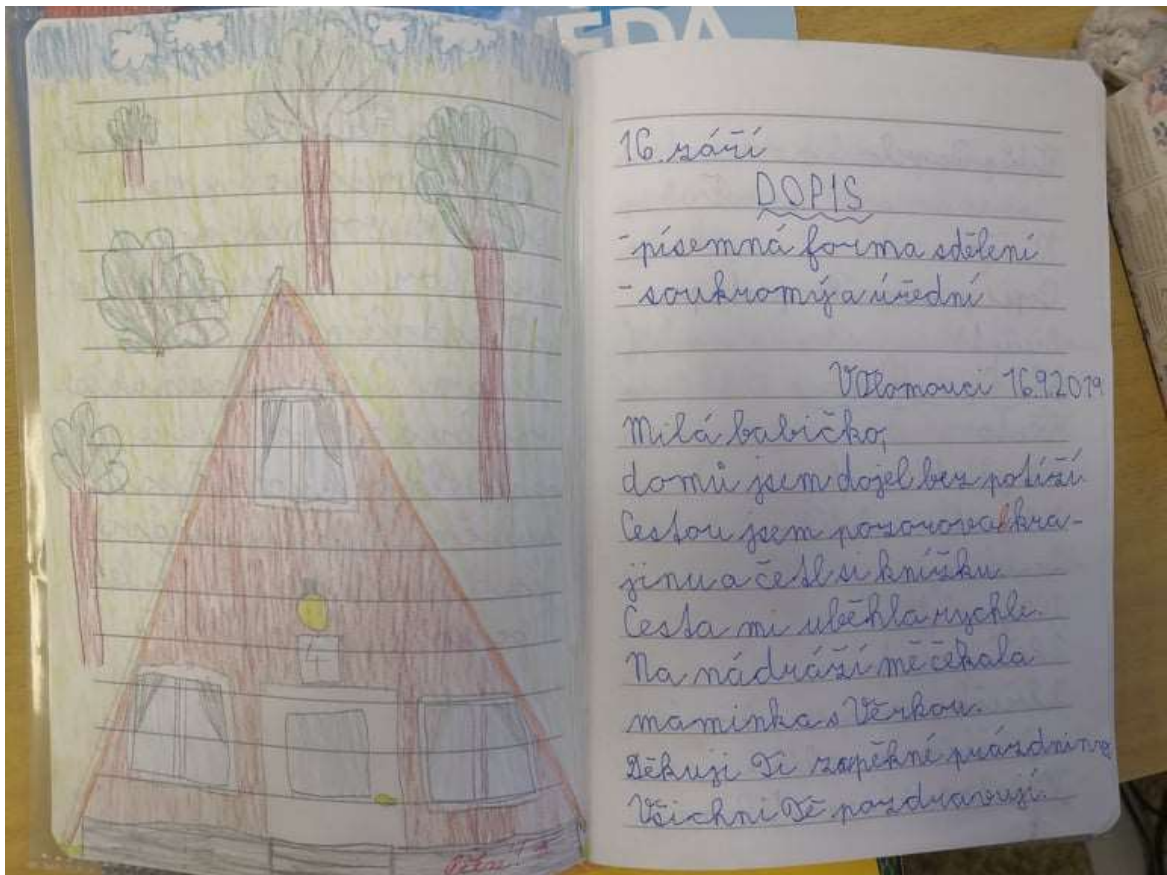 ĚDA
4
Pěkné!
16. září
DOPIS
- písemná forma sdělení
- soukromý a úřední
V Olomouci 16.9.2019
Milá babičko,
domů jsem dojel bez potíží.
Cestou jsem pozoroval kra-
jinu a četl si knížku.
Cesta mi uběhla rychle.
Na nádraží mě čekala
maminka s Věrkou.
Děkuji Ti za pěkné prázdniny.
Všichni Tě pozdravují.